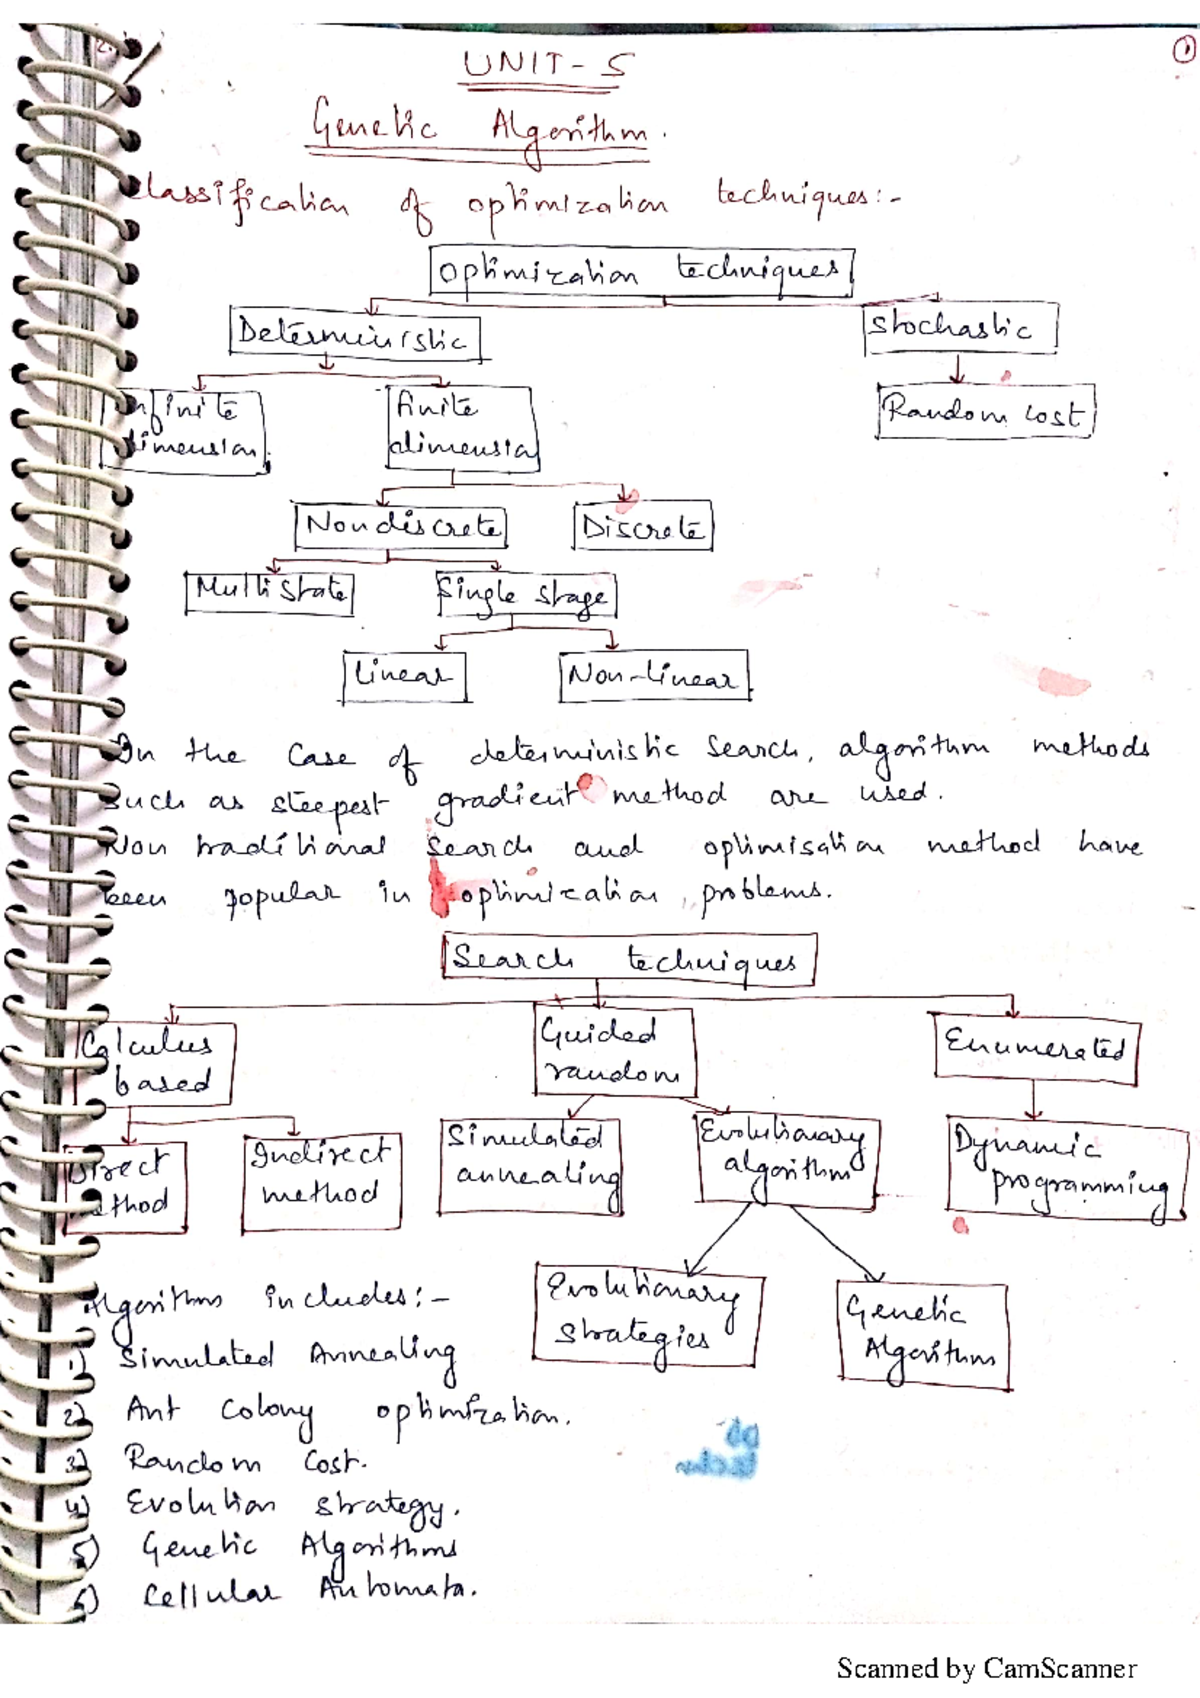 ①
UNIT-5
Genetic Algorithm.
Classification of optimization techniques:-
Optimization techniques
Deterministic
Stochastic
Infinite
dimension
finite
dimension
Random Cost
Nondiscrete
Discrete
Multi state
Single stage
Linear
Non-linear
In the case of deterministic search, algorithm methods
such as steepest gradient method are used.
Non traditional search and optimisation method have
been popular in optimization problems.
Search techniques
Calculus
based
Guided
random
Enumerated
Direct
method
Indirect
method
Simulated
annealing
Evolutionary
algorithm
Dynamic
programming
Evolutionary
strategies
Genetic
Algorithm
Algorithms includes:-
1) Simulated Annealing
2) Ant Colony optimization.
3) Random Cost.
4) Evolution strategy.
5) Genetic Algorithms
6) Cellular Automata.
Scanned by CamScanner